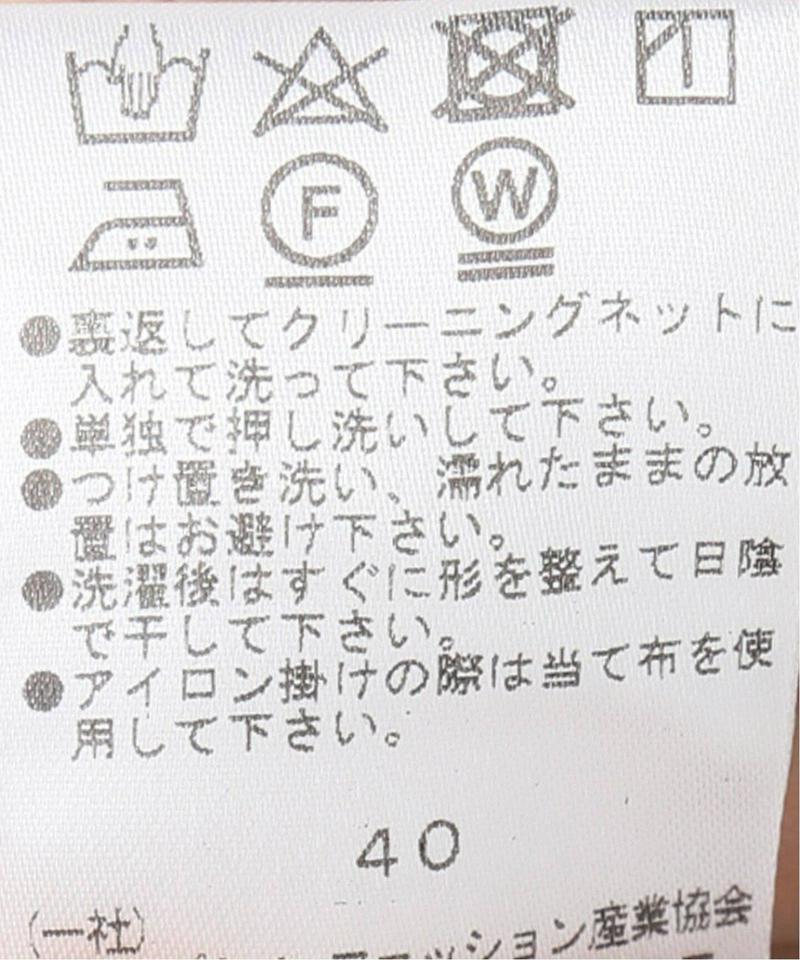 F
W
●裏返してクリーニングネットに
入れて洗って下さい。
●単独で押し洗いして下さい。
●つけ置き洗い、濡れたままの放
置はお避け下さい。
●洗濯後はすぐに形を整えて日陰
で干して下さい。
●アイロン掛けの際は当て布を使
用して下さい。
40
(一社)
ファッション産業協会